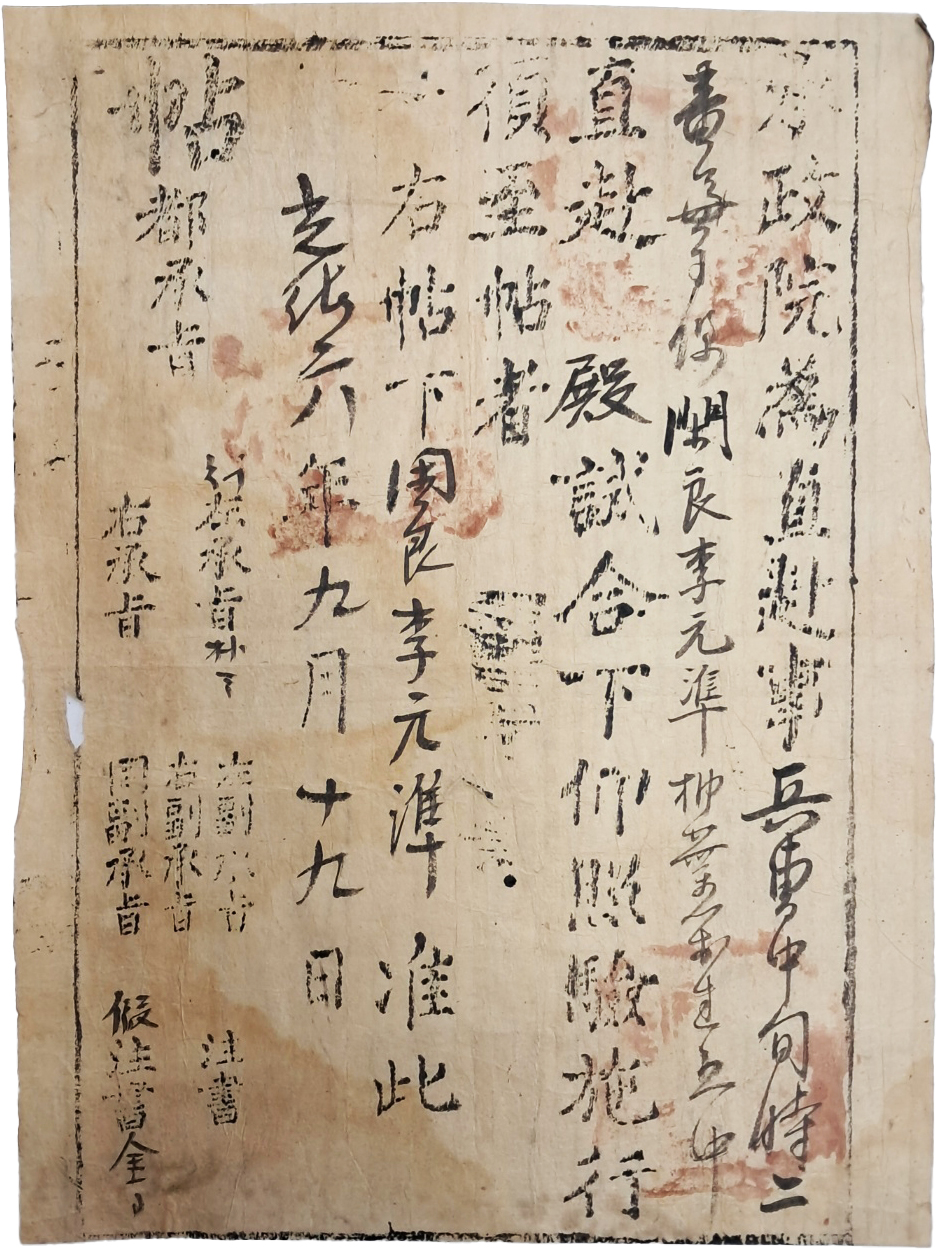 承政院為直赴事兵曹中旬時二
閑良李元準柳葉箭
直赴 殿試合下仰照驗施行
須至帖者
右帖下閑良李元準准此
光緒六年九月十九日
帖
都承旨
行左承旨朴
右承旨
左副承旨
右副承旨
同副承旨
注書
假注書金